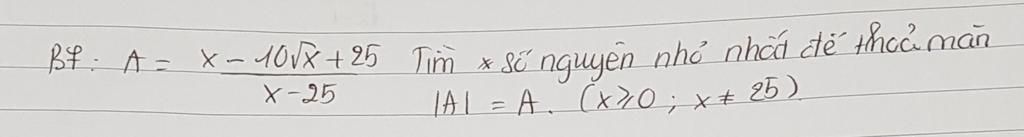 B7: A = x - 10√x + 25 / x - 25 Tìm x số nguyên nhỏ nhất để thoả mãn
|A| = A. (x ≥ 0 ; x ≠ 25)